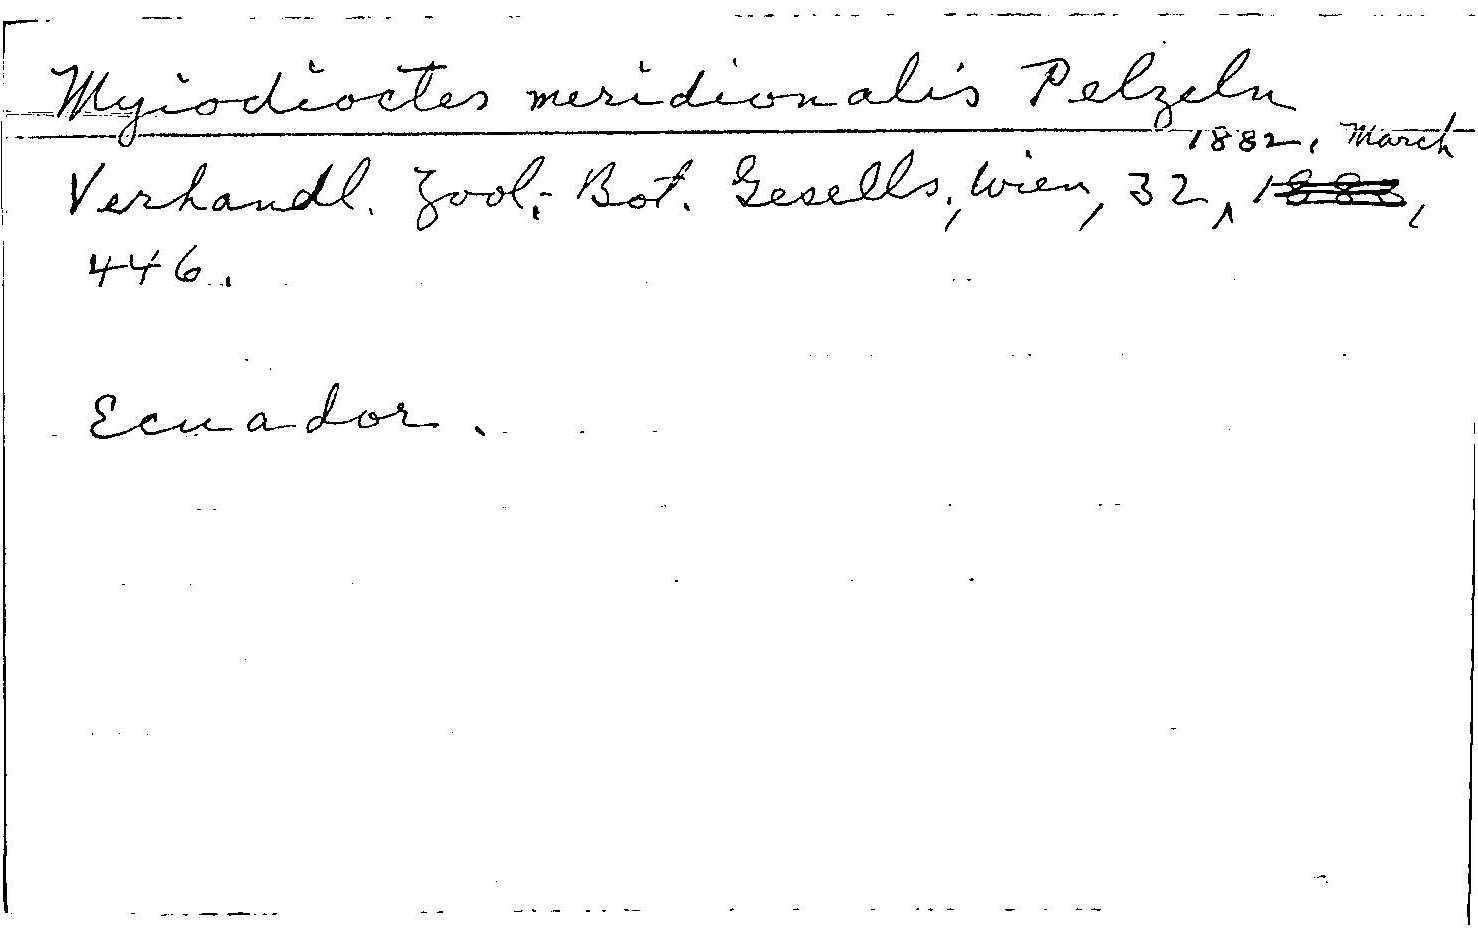 Myiodioctes meridionalis Pelzeln
1882, March
Verhandl. Zool.-Bot. Gesells., Wien, 32, ‸ 1883,
446.
Ecuador.